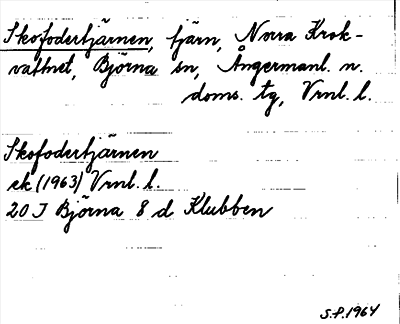 Skofodertjärnen, tjärn, Norra Krok-
vattnet, Björna sn, Ångermanl. n.
doms. tg, Vrnl. l.
Skofodertjärnen
ek (1963) Vrnl. l.
20 J Björna 8 d Klubben
S.P. 1964